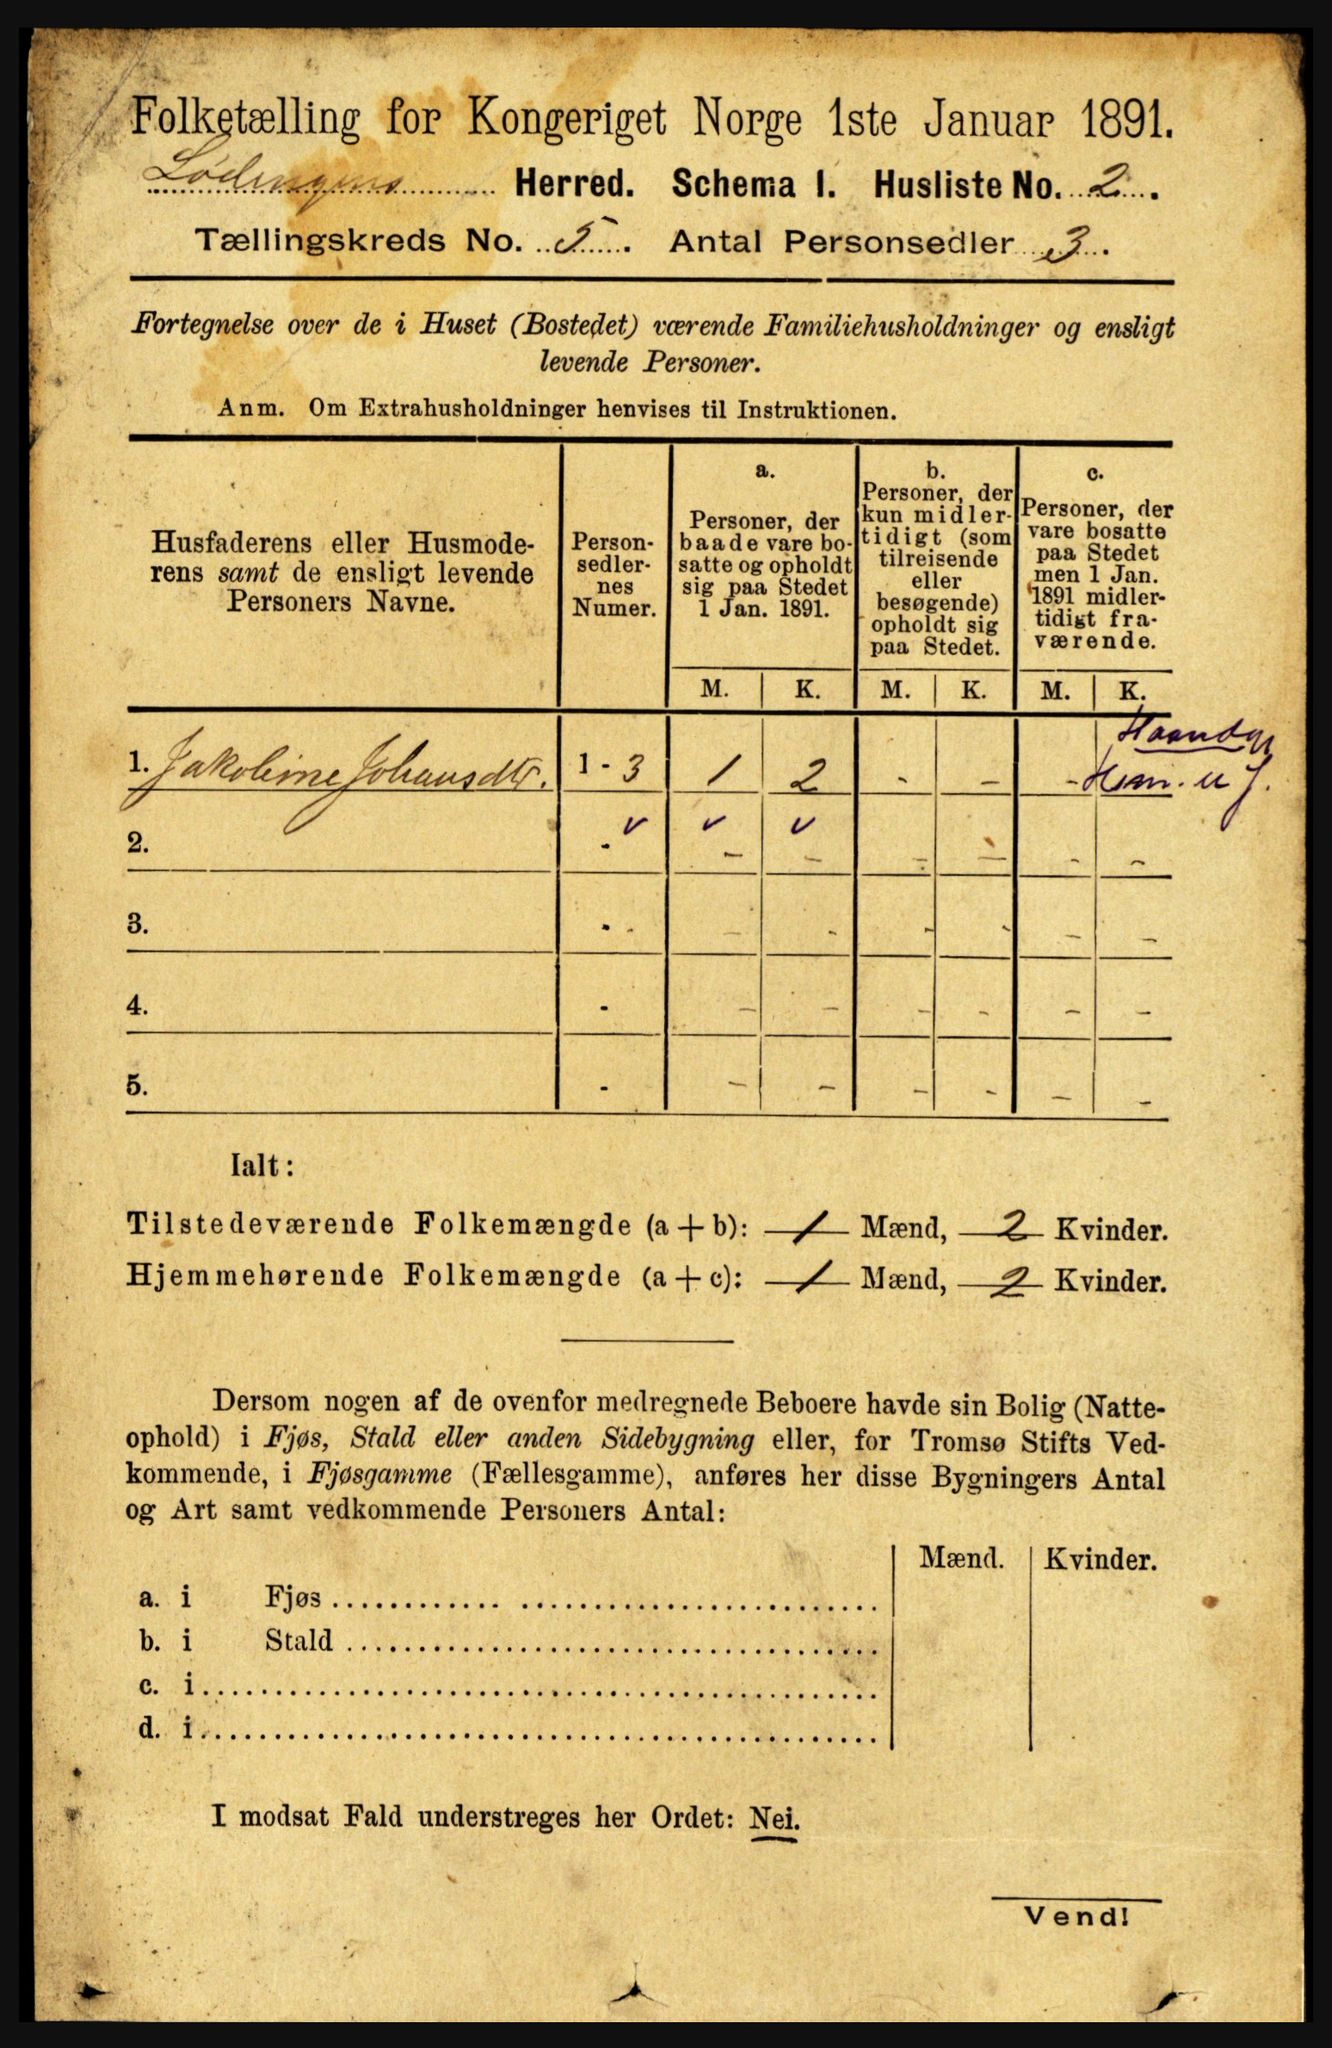 Folketælling for Kongeriget Norge 1ste Januar 1891.
Lødingens Herred. Schema I. Husliste No. 2.
Tællingskreds No. 5. Antal Personsedler 3.
Fortegnelse over de i Huset (Bostedet) værende Familiehusholdninger og ensligt
levende Personer.
Anm. Om Extrahusholdninger henvises til Instruktionen.
Husfaderens eller Husmode-
rens samt de ensligt levende
Personers Navne.
Person-
sedler-
nes
Numer.
a.
Personer, der
baade vare bo-
satte og opholdt
sig paa Stedet
1 Jan. 1891.
b.
Personer, der
kun midler-
tidigt (som
tilreisende
eller
besøgende)
opholdt sig
paa Stedet.
c.
Personer, der
vare bosatte
paa Stedet
men 1 Jan.
1891 midler-
tidigt fra-
værende.
M. K. M. K. M. K.
1. Jakobine Johansdtr. 1 - 3 1 2 - - -
2. - v v v - - - - - -
3. - - - - - - - -
4. - - - - - - -
5. - - - - - - -
Ialt:
Tilstedeværende Folkemængde (a + b): 1 Mænd, 2 Kvinder.
Hjemmehørende Folkemængde (a + c): 1 Mænd, 2 Kvinder.
Dersom nogen af de ovenfor medregnede Beboere havde sin Bolig (Natte-
ophold) i Fjøs, Stald eller anden Sidebygning eller, for Tromsø Stifts Ved-
kommende, i Fjøsgamme (Fællesgamme), anføres her disse Bygningers Antal
og Art samt vedkommende Personers Antal:
Mænd. Kvinder.
a. i Fjøs
b. i Stald
c. i
d. i
I modsat Fald understreges her Ordet: Nei.
Vend!